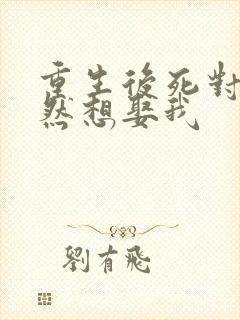 重生後死對
然想娶我
劉有飛